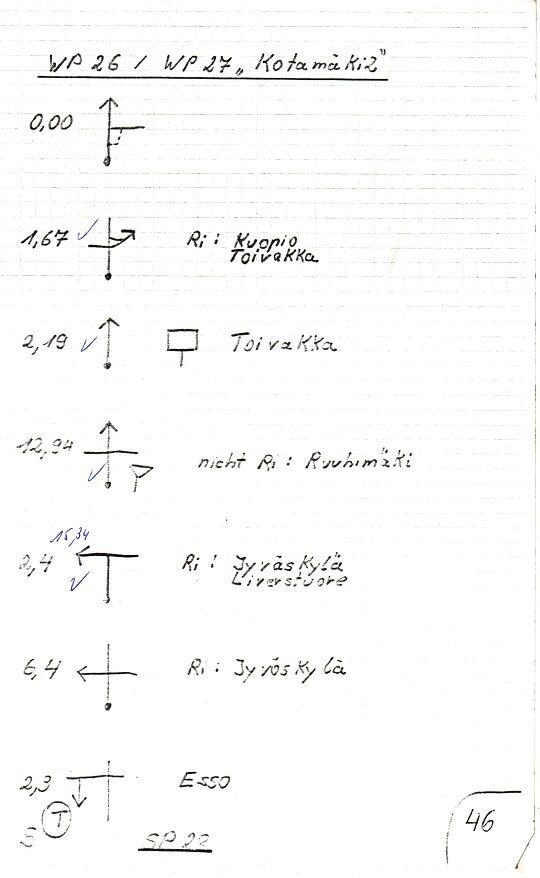 WP 26 / WP 27 „Kotamäki2"
0,00
1,67 Ri: Kuopio
Toivakka
2,19 Toivakka
12,94 nicht Ri: Ruuhimäki
15,34
2,4 Ri: Jyväskylä
Liverstuore
6,4 Ri: Jyväskylä
2,3 Esso
S T SP 22
46